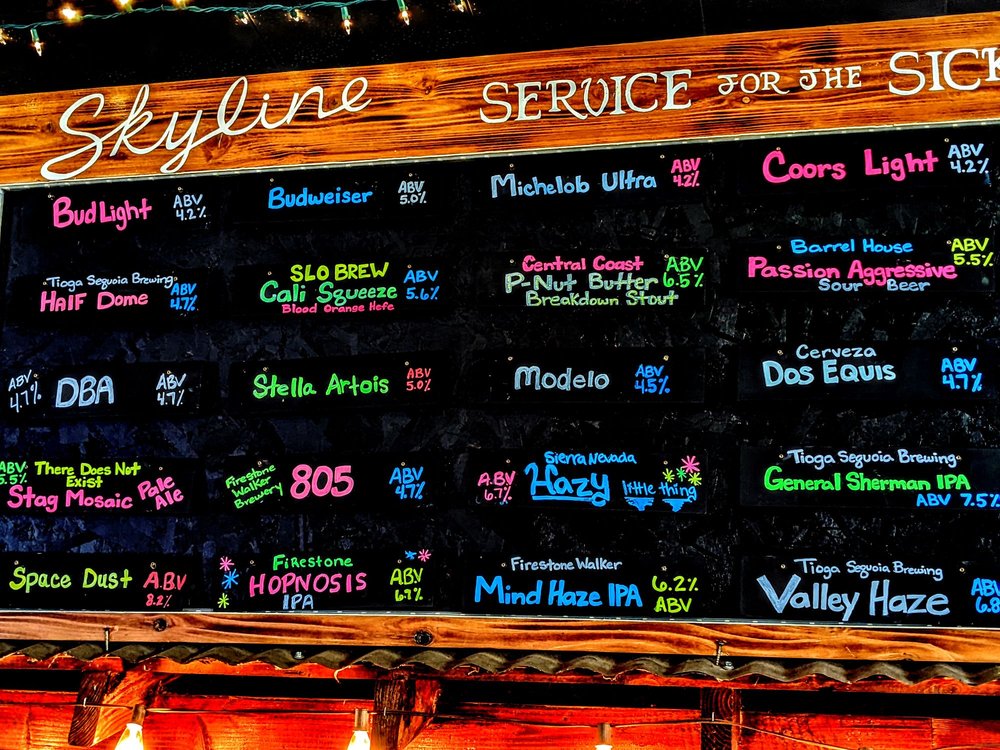 Skyline SERVICE FOR THE SICK
Bud Light ABV 4.2%
Budweiser ABV 5.0%
Michelob Ultra ABV 4.2%
Coors Light ABV 4.2%
Tioga Sequoia Brewing
HAlF Dome ABV 4.7%
SLO BREW
Cali Squeeze ABV 5.6%
Blood Orange Hefe
Central Coast
P-Nut Butter ABV 6.5%
Breakdown Stout
Barrel House
Passion Aggressive ABV 5.5%
Sour Beer
ABV 4.7% DBA ABV 4.7%
Stella Artois ABV 5.0%
Modelo ABV 4.5%
Cerveza
Dos Equis ABV 4.7%
ABV 5.5% There Does Not
Exist
Stag Mosaic Pale Ale
Firestone
Walker
Brewery
805 ABV 4.7%
Sierra Nevada
A.BV 6.7% Hazy little thing
Tioga Sequoia Brewing
General Sherman IPA
ABV 7.5%
Space Dust A.B.V 8.2%
Firestone
HOPNOSIS ABV 6.7%
IPA
Firestone Walker
Mind Haze IPA 6.2% ABV
Tioga Sequoia Brewing
Valley Haze ABV 6.8